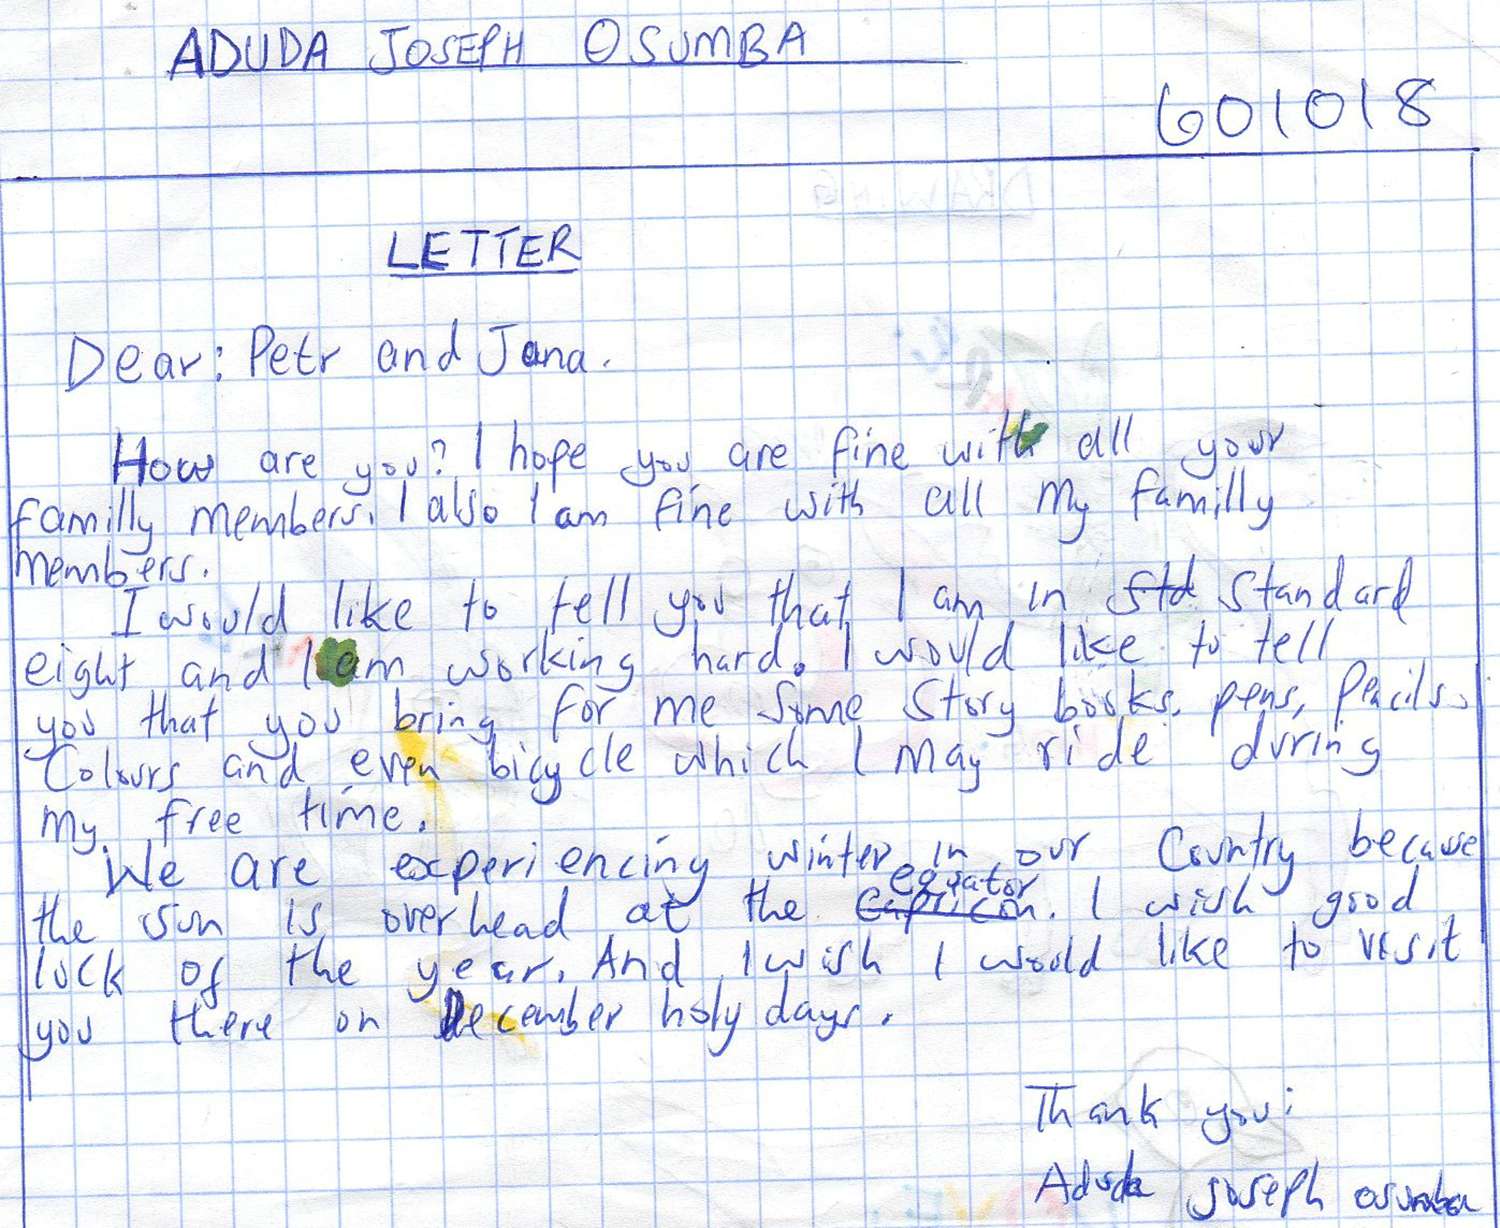 ADUDA JOSEPH OSUMBA
601018
DRAWING
LETTER
Dear: Petr and Jana.
How are you? I hope you are fine with all your
familly members. I also I am fine with all my familly
members.
I would like to tell you that I am in std standard
eight and I am working hard. I would like to tell
you that you bring for me some story books, pens, Pencils.
Colours and even bicycle which I may ride during
my free time.
We are experiencing winter in our Country because
the sun is overhead at the capricon equator. I wish good
luck of the year. And I wish I would like to visit
you there on December holy days.
Thank you:
Aduda Joseph osumba